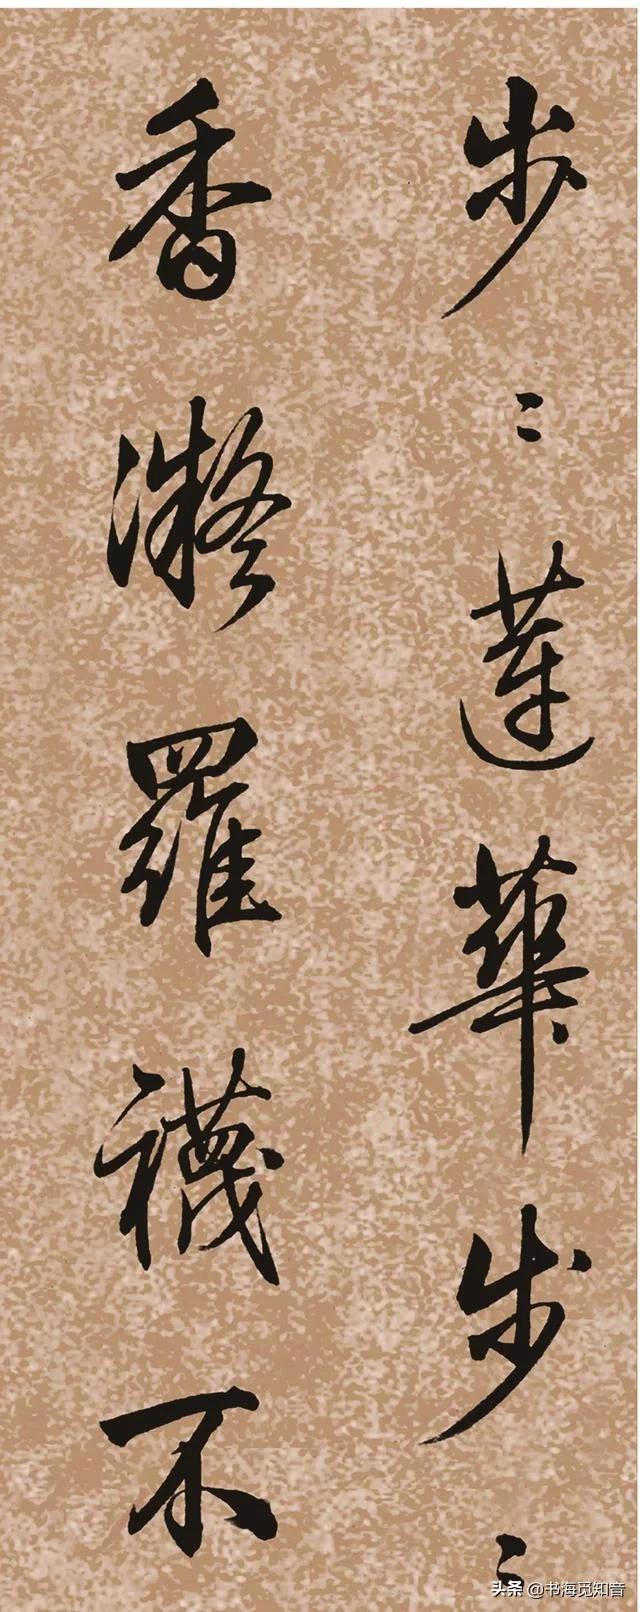 步〻蓮華步〻
香凝羅襪不
头条 @书海觅知音